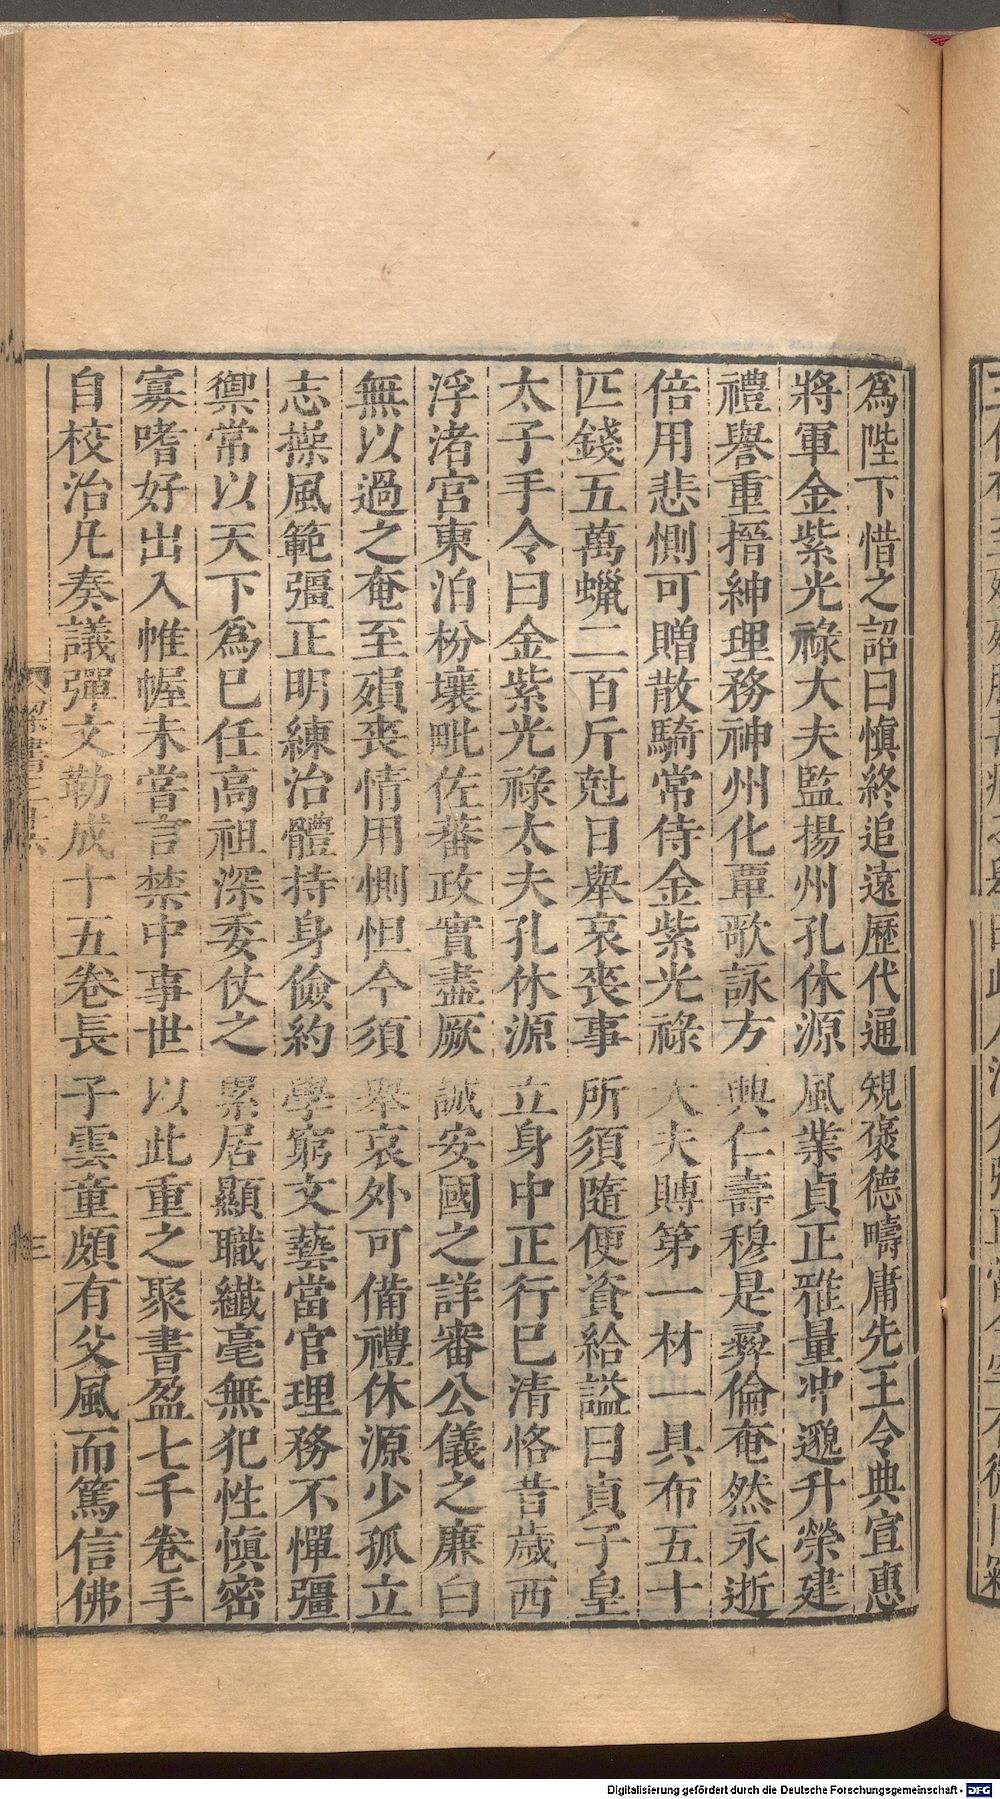 爲陛下惜之詔曰愼終追遠歷代通規褒德疇庸先王令典宣惠
將軍金紫光祿大夫監揚州孔休源風業貞正雅量冲邈升榮建
禮譽重搢紳理務神州化覃歌詠方興仁壽穆是彝倫奄然永逝
倍用悲惻可贈散騎常侍金紫光祿大夫賻第一材一具布五十
匹錢五萬蠟二百斤尅日舉哀喪事所須隨便資給謚曰貞子皇
太子手令曰金紫光祿太夫孔休源立身中正行巳清恪昔歲西
浮渚宮東泊枌壤毗佐蕃政實盡厥誠安國之詳審公儀之廉白
無以過之奄至殞喪情用惻怛今須舉哀外可備禮休源少孤立
志操風範彊正明練治體持身儉約學窮文藝當官理務不憚彊
禦常以天下爲巳任高祖深委仗之累居顯職纖毫無犯性愼密
寡嗜好出入帷幄未嘗言禁中事世以此重之聚書盈七千卷手
自校治凡奏議彈文勒成十五卷長子雲童頗有父風而篤信佛
三
Digitalisierung gefördert durch die Deutsche Forschungsgemeinschaft - DFG